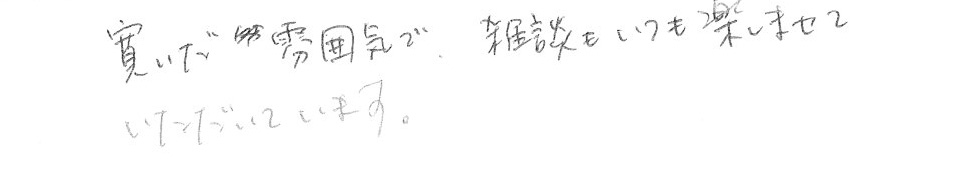 寛いだ雰囲気で、雑談もいつも楽しませて
いただいています。